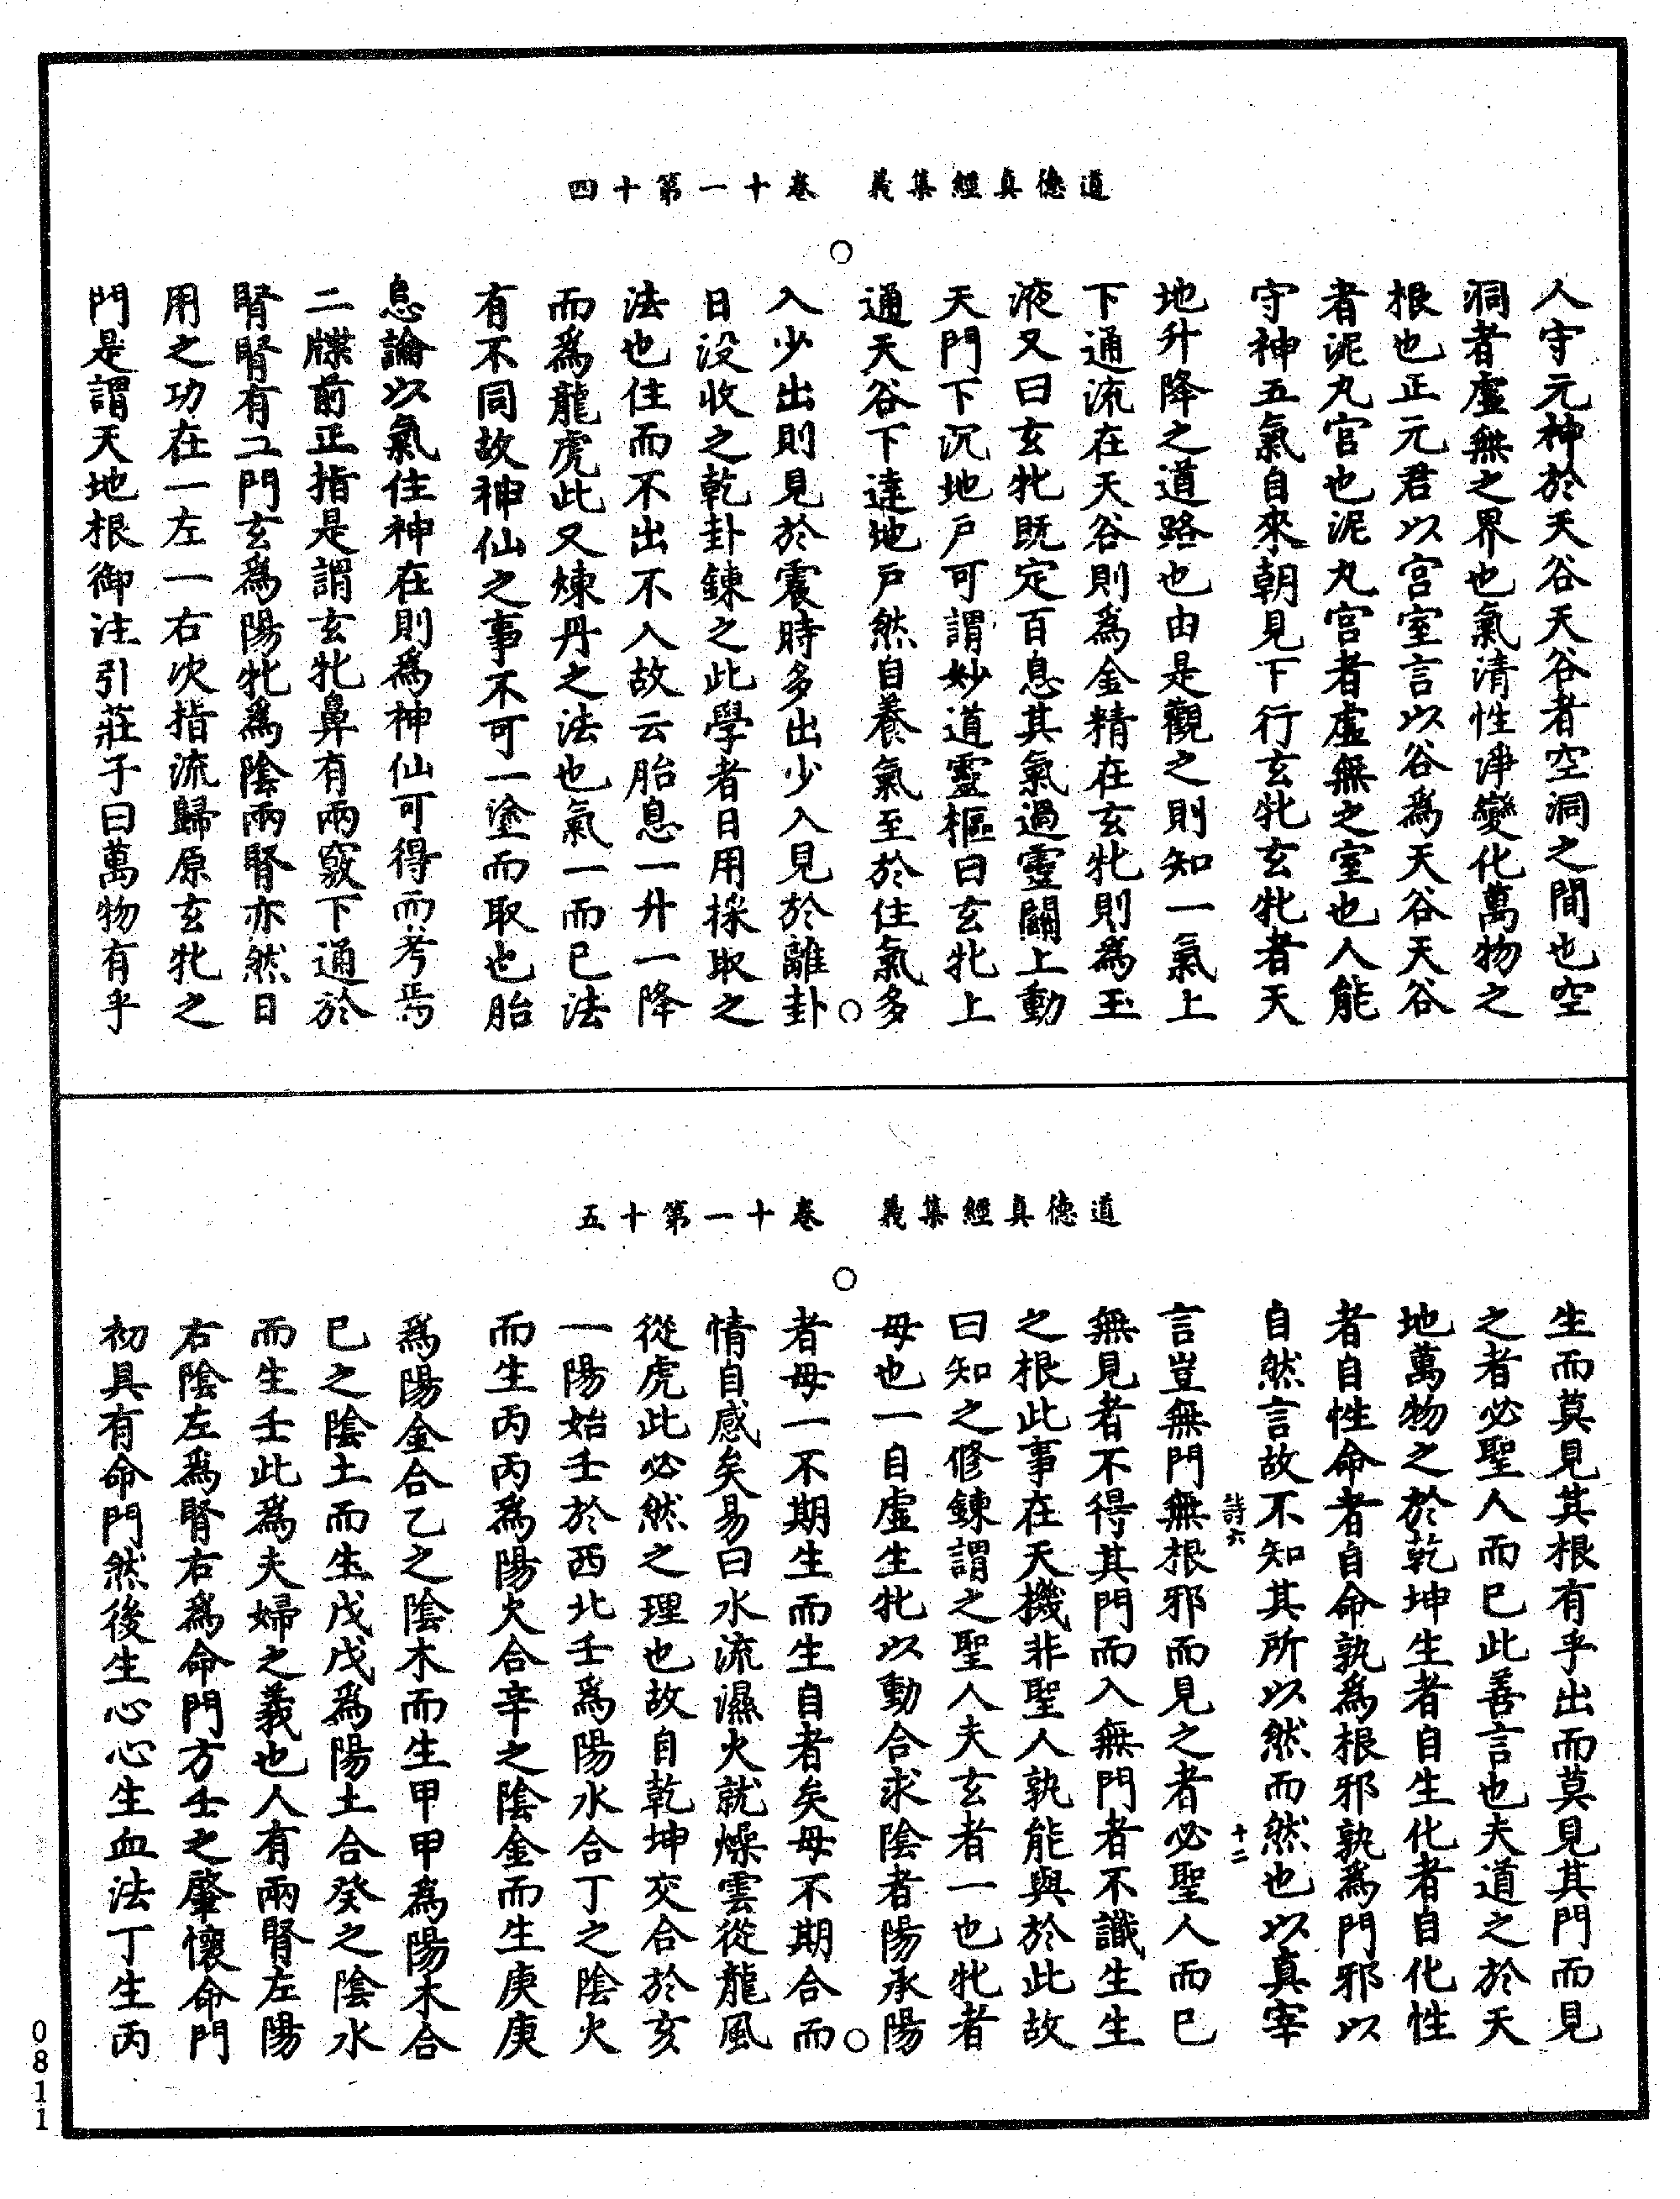 道德真經集義　卷十一第十四
人守元神於天谷天谷者空洞之間也空
洞者虛無之界也氣清性淨變化萬物之
根也正元君以宮室言以谷為天谷天谷
者泥丸宮也泥丸宮者虛無之室也人能
守神五氣自來朝見下行玄牝玄牝者天
地升降之道路也由是觀之則知一氣上
下通流在天谷則為金精在玄牝則為玉
液又曰玄牝既定百息其氣過靈關上動
天門下沉地戶可謂妙道靈樞曰玄牝上
通天谷下達地戶然自養氣至於住氣多
入少出則見於震時多出少入見於離卦
日没收之乾卦鍊之此學者日用採取之
法也住而不出不入故云胎息一升一降
而為龍虎此又煉丹之法也氣一而已法
有不同故神仙之事不可一塗而取也胎
息論以氣住神在則為神仙可得而考焉
二牒前正指是謂玄牝鼻有兩竅下通於
腎腎有二門玄為陽牝為陰兩腎亦然日
用之功在一左一右次指流歸原玄牝之
門是謂天地根御注引莊子曰萬物有乎
道德真經集義　卷十一第十五
生而莫見其根有乎出而莫見其門而見
之者必聖人而已此善言也夫道之於天
地萬物之於乾坤生者自生化者自化性
者自性命者自命孰為根邪孰為門邪以
自然言故不知其所以然而然也以真宰
詩六　十二
言豈無門無根邪而見之者必聖人而已
無見者不得其門而入無門者不識生生
之根此事在天機非聖人孰能與於此故
曰知之修鍊謂之聖人夫玄者一也牝者
母也一自虛生牝以動合求陰者陽承陽
者母一不期生而生自者矣母不期合而
情自感矣易曰水流濕火就燥雲從龍風
從虎此必然之理也故自乾坤交合於亥
一陽始壬於西北壬為陽水合丁之陰火
而生丙丙為陽火合辛之陰金而生庚庚
為陽金合乙之陰木而生甲甲為陽木合
已之陰土而生戊戊為陽土合癸之陰水
而生壬此為夫婦之義也人有兩腎左陽
右陰左為腎右為命門方壬之肇懷命門
初具有命門然後生心心生血法丁生丙
0811